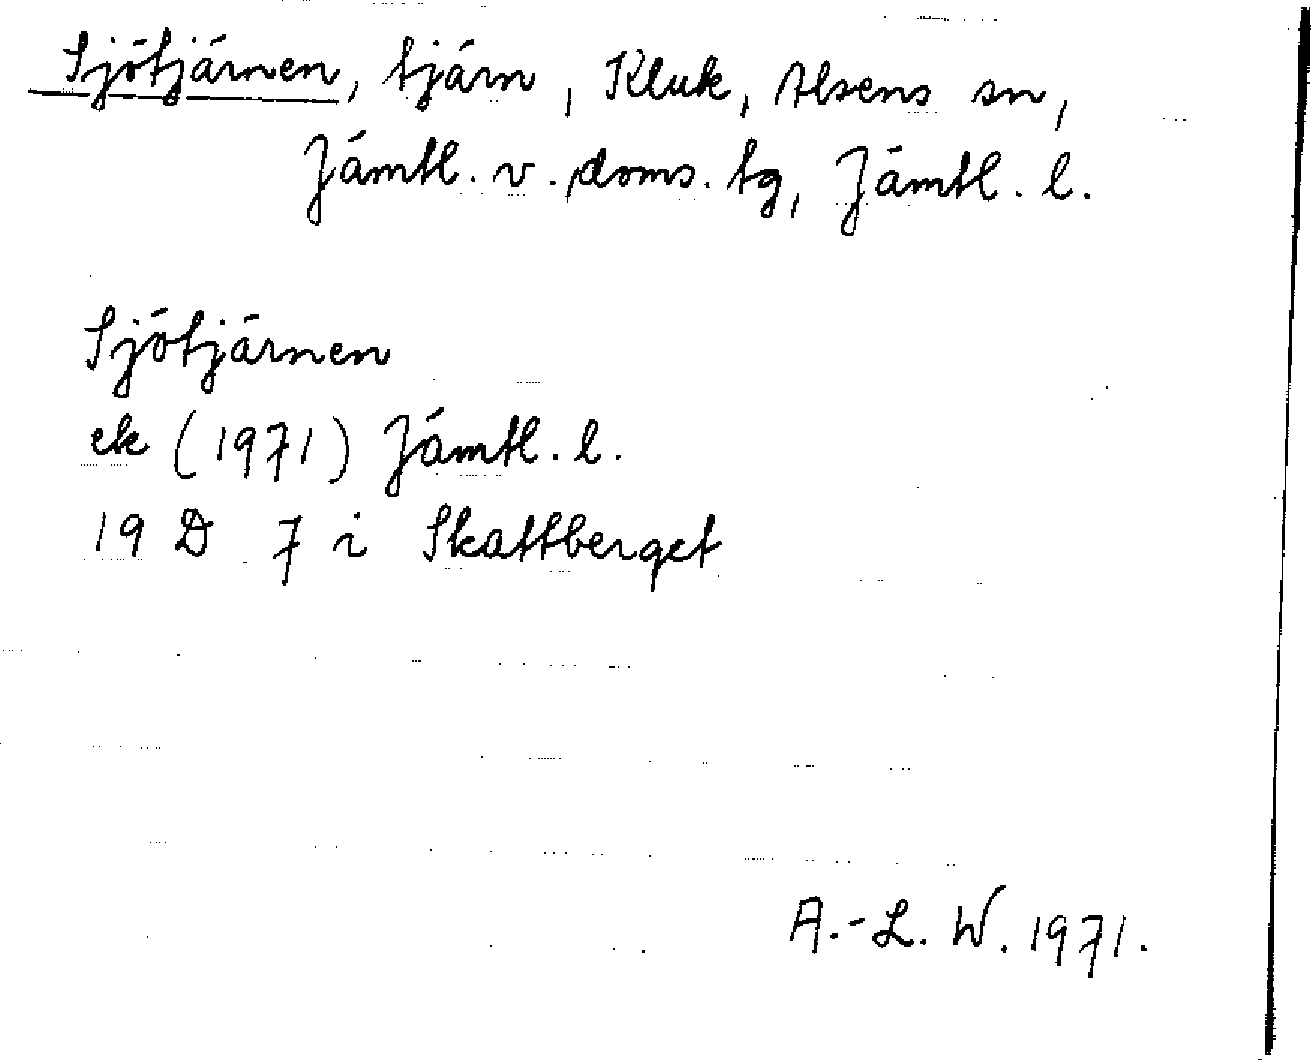 Sjötjärnen, tjärn, Kluk, Alsens sn,
Jämtl. v. doms. tg, Jämtl. l.
Sjötjärnen
ek (1971) Jämtl. l.
19 D 7 i Skattberget
A.-L. W. 1971.